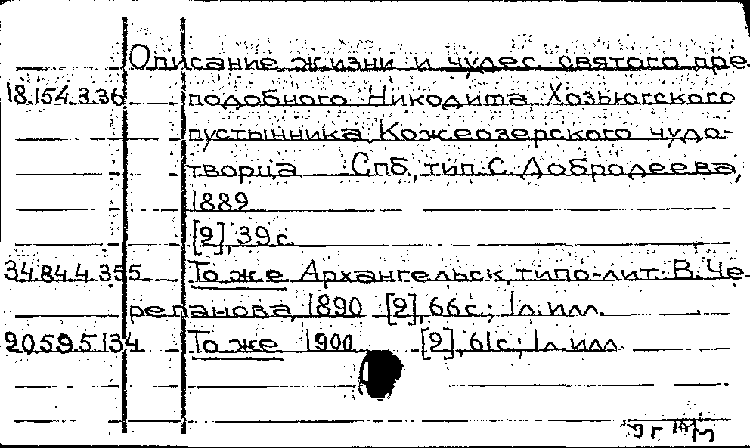 Описание жизни и чудес святого пре-
18.154.3.36 подобного Никодима Хозьюгского
пустынника, Кожеозерского чудо-
творца Спб, тип. С. Добродеева,
1889
[2], 39 с.
34.84.4.355 То же Архангельск, типо-лит. В. Че-
репанова, 1890 [2], 66 с.; 1 л. илл.
20.59.5.134 То же 1900 [2], 61 с.; 1 л. илл.